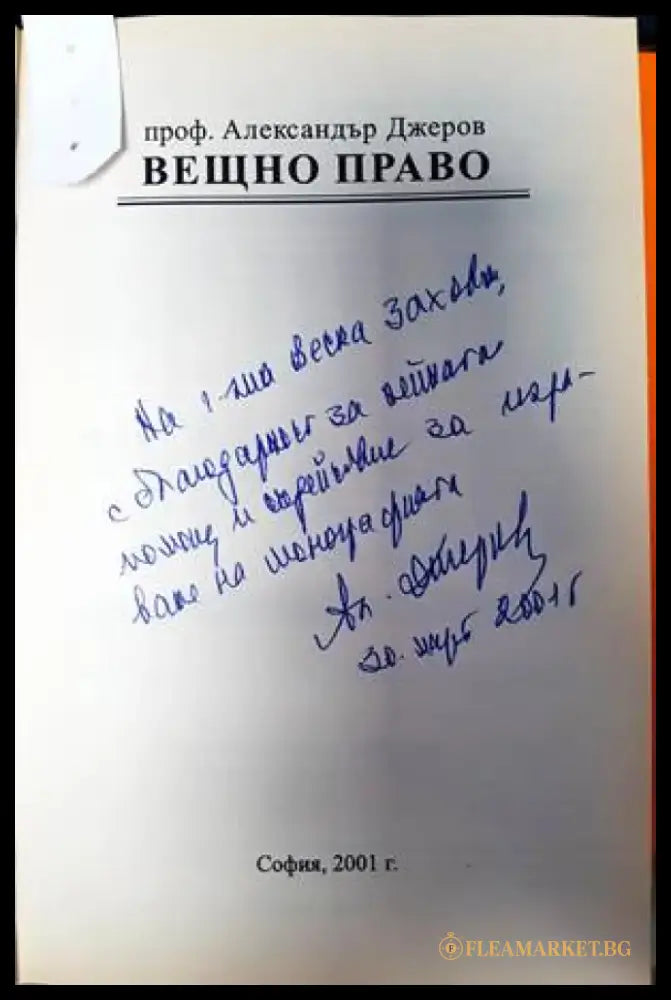 проф. Александър Джеров
ВЕЩНО ПРАВО
На г-жа Веска Захова,
с благодарност за нейната
помощ и съдействие за изра-
ване на монографията
Ал. Джеров
30. март 2001 г
София, 2001 г.
FLEAMARKET.BG